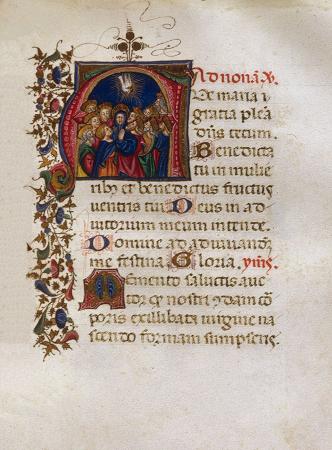 Ad nonā. ℣.
Ve maria
gratia plēa
dn̄s tecum.
Benedicta
tu in mulie
ribꝰ et benedictus fructus
ventris tui Deus in ad
iutorium meum intende.
Domine ad adiuvandū
me festina Gloria. ymn̄s
Memento salutis auc
tor qꝫ nostri quondam cō
poris ex illibata virgine na
scendo formam sumpseris.